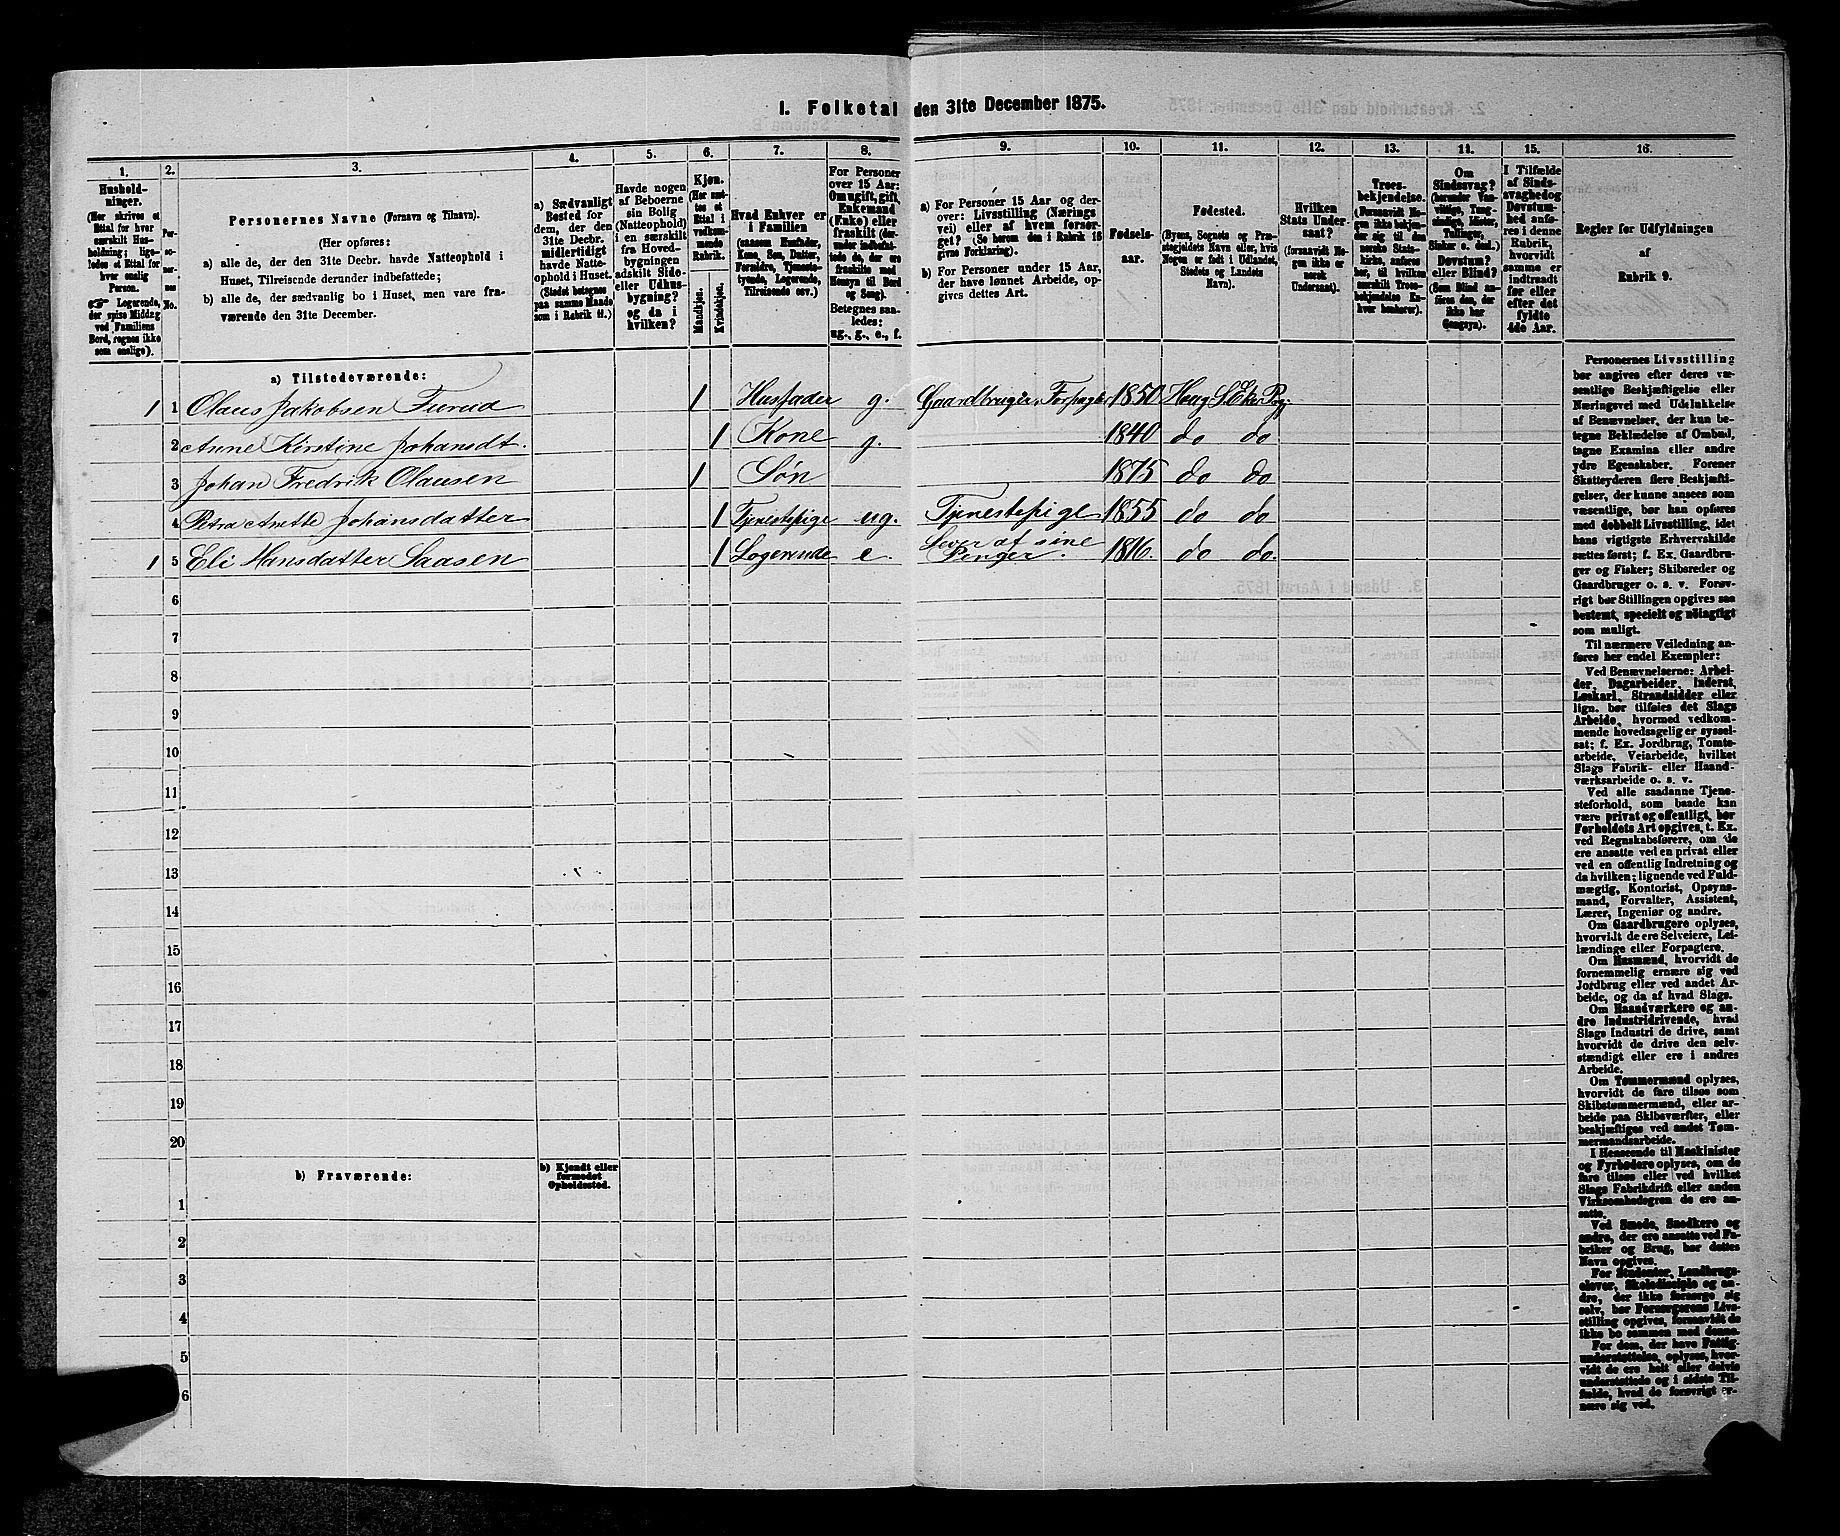 I. Folketal den 31te December 1875.
1. 2. 3. 4. 5. 6. 7. 8. 9. 10. 11. 12. 13. 14. 15. 16.
Hushold-
ninger.
(Her skrives et
Ettal for hver
særskilt Hus-
holdning; lige-
ledes et Ettal for
hver enslig
Person.
Logerende,
der spise Middag
ved Familiens
Bord, regnes ikke
som enslige).
Per-
so-
ner-
nes
No.
Personernes Navne (Fornavn og Tilnavn).
(Her opføres:
a) alle de, der den 31te Decbr. havde Natteophold i
Huset, Tilreisende derunder indbefattede;
b) alle de, der sædvanlig bo i Huset, men vare fra-
værende den 31te December.
a) Sædvanligt
Bosted for
dem, der den
31te Decbr.
midlertidigt
havde Natte-
ophold i Huset.
(Stedet betegnes
paa samme Maade
som i Rubrik 11.)
Havde nogen
af Beboerne
sin Bolig
(Natteophold)
i en særskilt
fra Hoved-
bygningen
adskilt Side-
eller Udhus-
bygning?
og da i
hvilken?
Kjøn.
(Her sæt-
tes et
Ettal i
vedkom-
mende
Rubrik.
Mandkjøn.
Kvindekjøn.
Hvad Enhver er
i Familien
(saasom Husfader,
Kone, Søn, Datter,
Forældre, Tjeneste-
tyende, Logerende,
Tilreisende osv.)
For Personer
over 15 Aar:
Om ugift, gift,
Enkemand
(Enke) eller
fraskilt (der-
under indbefat-
tede de, der ere
fraskilte med
Hensyn til Bord
og Seng).
Betegnes saa-
ledes:
ug., g., e., f.
a) For Personer 15 Aar og der-
over: Livsstilling (Nærings-
vei) eller af hvem forsør-
get? (Se herom den i Rubrik 16
givne Forklaring).
b) For Personer under 15 Aar,
der have lønnet Arbeide, op-
gives dettes Art.
Fødsels-
aar.
Fødested.
(Byens, Sognets og Præ-
stegjeldets Navn eller, hvis
Nogen er født i Udlandet,
Stedets og Landets
Navn).
Hvilken
Stats Under-
saat?
(forsaavidt No-
gen ikke er
norsk
Undersaat).
Troes-
bekjendelse.
(Forsaavidt No-
gen ikke bekjen-
der sig til den
norske Stats-
kirke, anføres
her, til hvilken
særskilt Troes-
bekjendelse En-
hver henhører).
Om
Sindssvag?
(herunder Van-
vittige, Tung-
sindige, Idioter,
Tullinger,
Sinker o. desl.)
Døvstum?
eller Blind?
(Som Blind an-
føres den, der
ikke har
Gangsyn).
I Tilfælde
af Sinds-
svaghed og
Døvstum-
hed anfø-
res i denne
Rubrik,
hvorvidt
samme er
indtraadt
før eller
efter det
fyldte
4de Aar.
Regler før Udfyldningen
af
Rubrik 9.
a) Tilstedeværende:
1 1 Olaus Jakobsen Turud 1 Husfader g. Gaardbruger, Forpagter 1850 Haug S. Eker Pg.
2 Anne Kirstine Johansdt. 1 Kone g. 1840 do do
3 Johan Fredrik Olausen 1 Søn 1875 do do
4 Petra Anette Johansdatter 1 Tjenestepige ug. Tjenestepige 1855 do do
1 5 Eli Hansdatter Saasen 1 Logerende e. Lever af sine
Penger. 1816. do do.
6
7
8
9
10
11
12
13
14
15
16
17
18
19
20
b) Fraværende:
b) Kjendt eller
formodet
Opholdssted.
1
2
3
4
5
6
Personernes Livsstilling
bør angives efter deres væ-
sentlige Beskjæftigelse eller
Næringsvei med Udelukkelse
af Benævnelser, der kun be-
tegne Beklædelse af Ombud,
tagne Examina eller andre
ydre Egenskaber. Forener
Skatteyderen flere Beskjæfti-
gelser, der kunne ansees som
væsentlige, bør han opføres
med dobbelt Livsstilling, idet
hans vigtigste Erhvervskilde
sættes først; f. Ex. Gaardbru-
ger og Fisker; Skibsreder og
Gaardbruger o. s. v. Forøv-
rigt bør Stillingen opgives saa
bestemt, specielt og nøiagtigt
som muligt.
Til nærmere Veiledning an-
føres her endel Exempler:
Ved Benævnelserne: Arbei-
der, Dagarbeider, Inderst,
Løskarl, Strandsidder eller
lign. bør tilføies det Slags
Arbeide, hvormed vedkom-
mende hovedsagelig er syssel-
sat; f. Ex. Jordbrug, Tomte-
arbeide, Veiarbeide, hvilket
Slags Fabrik- eller Haand-
værksarbeide o. s. v.
Ved alle saadanne Tjene-
steforhold, som baade kan
være privat og offentligt, bør
Forholdets Art opgives, f. Ex.
ved Regnskabsførere, om de
ere ansatte ved en privat eller
ved en offentlig Indretning og
da hvilken; lignende ved Fuld-
mægtig, Kontorist, Opsyns-
mand, Forvalter, Assistent,
Lærer, Ingeniør og andre.
Om Gaardbrugere oplyses,
hvorvidt de ere Selveiere, Lei-
lændinge eller Forpagtere.
Om Husmænd, hvorvidt de
fornemmelig ernære sig ved
Jordbrug eller ved andet Ar-
beide, og da af hvad Slags.
Om Haandværkere og an-
dre Industridrivende, hvad
Slags Industri de drive, samt
hvorvidt de drive den selv-
stændigt eller ere i andres
Arbeide.
Om Tømmermænd oplyses,
hvorvidt de fare tilsøs som
Skibstømmermænd, eller ar-
beide paa Skibsværfter, eller
beskjæftiges ved andet Tøm-
mermandsarbeide.
I Henseende til Maskinister
og Fyrbødere oplyses, om de
fare tilsøs eller ved hvilket
Slags Fabrikdrift eller anden
Virksomhedsgren de ere an-
satte.
Ved Smede, Snedkere og
andre, der ere ansatte ved Fa-
briker og Brug, bør dettes
Navn opgives.
For Studenter, Landbrugs-
elever, Skoledisciple og an-
dre, der ikke forsørge sig
selv, bør Forsørgerens Livs-
stilling opgives, forsaavidt de
ikke bo sammen med denne.
For dem, der have Fattig-
understøttelse, oplyses, hvor-
vidt de ere helt eller delvis
understøttede og i sidste Til-
fælde, hvad de forøvrigt er-
nære sig ved.